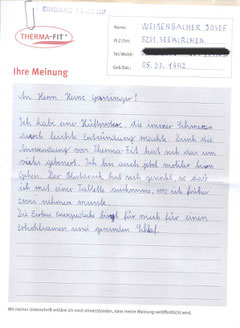 EINGANG
THERMA-FIT®
Ihre Meinung
Name: WEISENBACHER JOSEF
PLZ/Ort: 5201 SEEKIRCHEN
Tel/Mobil:
Geb.Dat.: 05.02.1942
An Herrn Heinz
Ich habe eine Hüftprothese, die immer Schmerzen
durch leichte Entzündung machte. Durch die
Anwendung von Therma-Fit hat sich das um
vieles gebessert. Ich bin auch jetzt mobiler beim
Gehen. Der Blutdruck hat sich gesenkt, so daß
ich mit einer Tablette auskomme, wo ich früher
zwei nehmen musste.
Die Zirben Energiedecke bringt für mich für einen
erholsamen und gesunden Schlaf.
Mit meiner Unterschrift erkläre ich mich einverstanden, dass meine Meinung veröffentlicht wird.